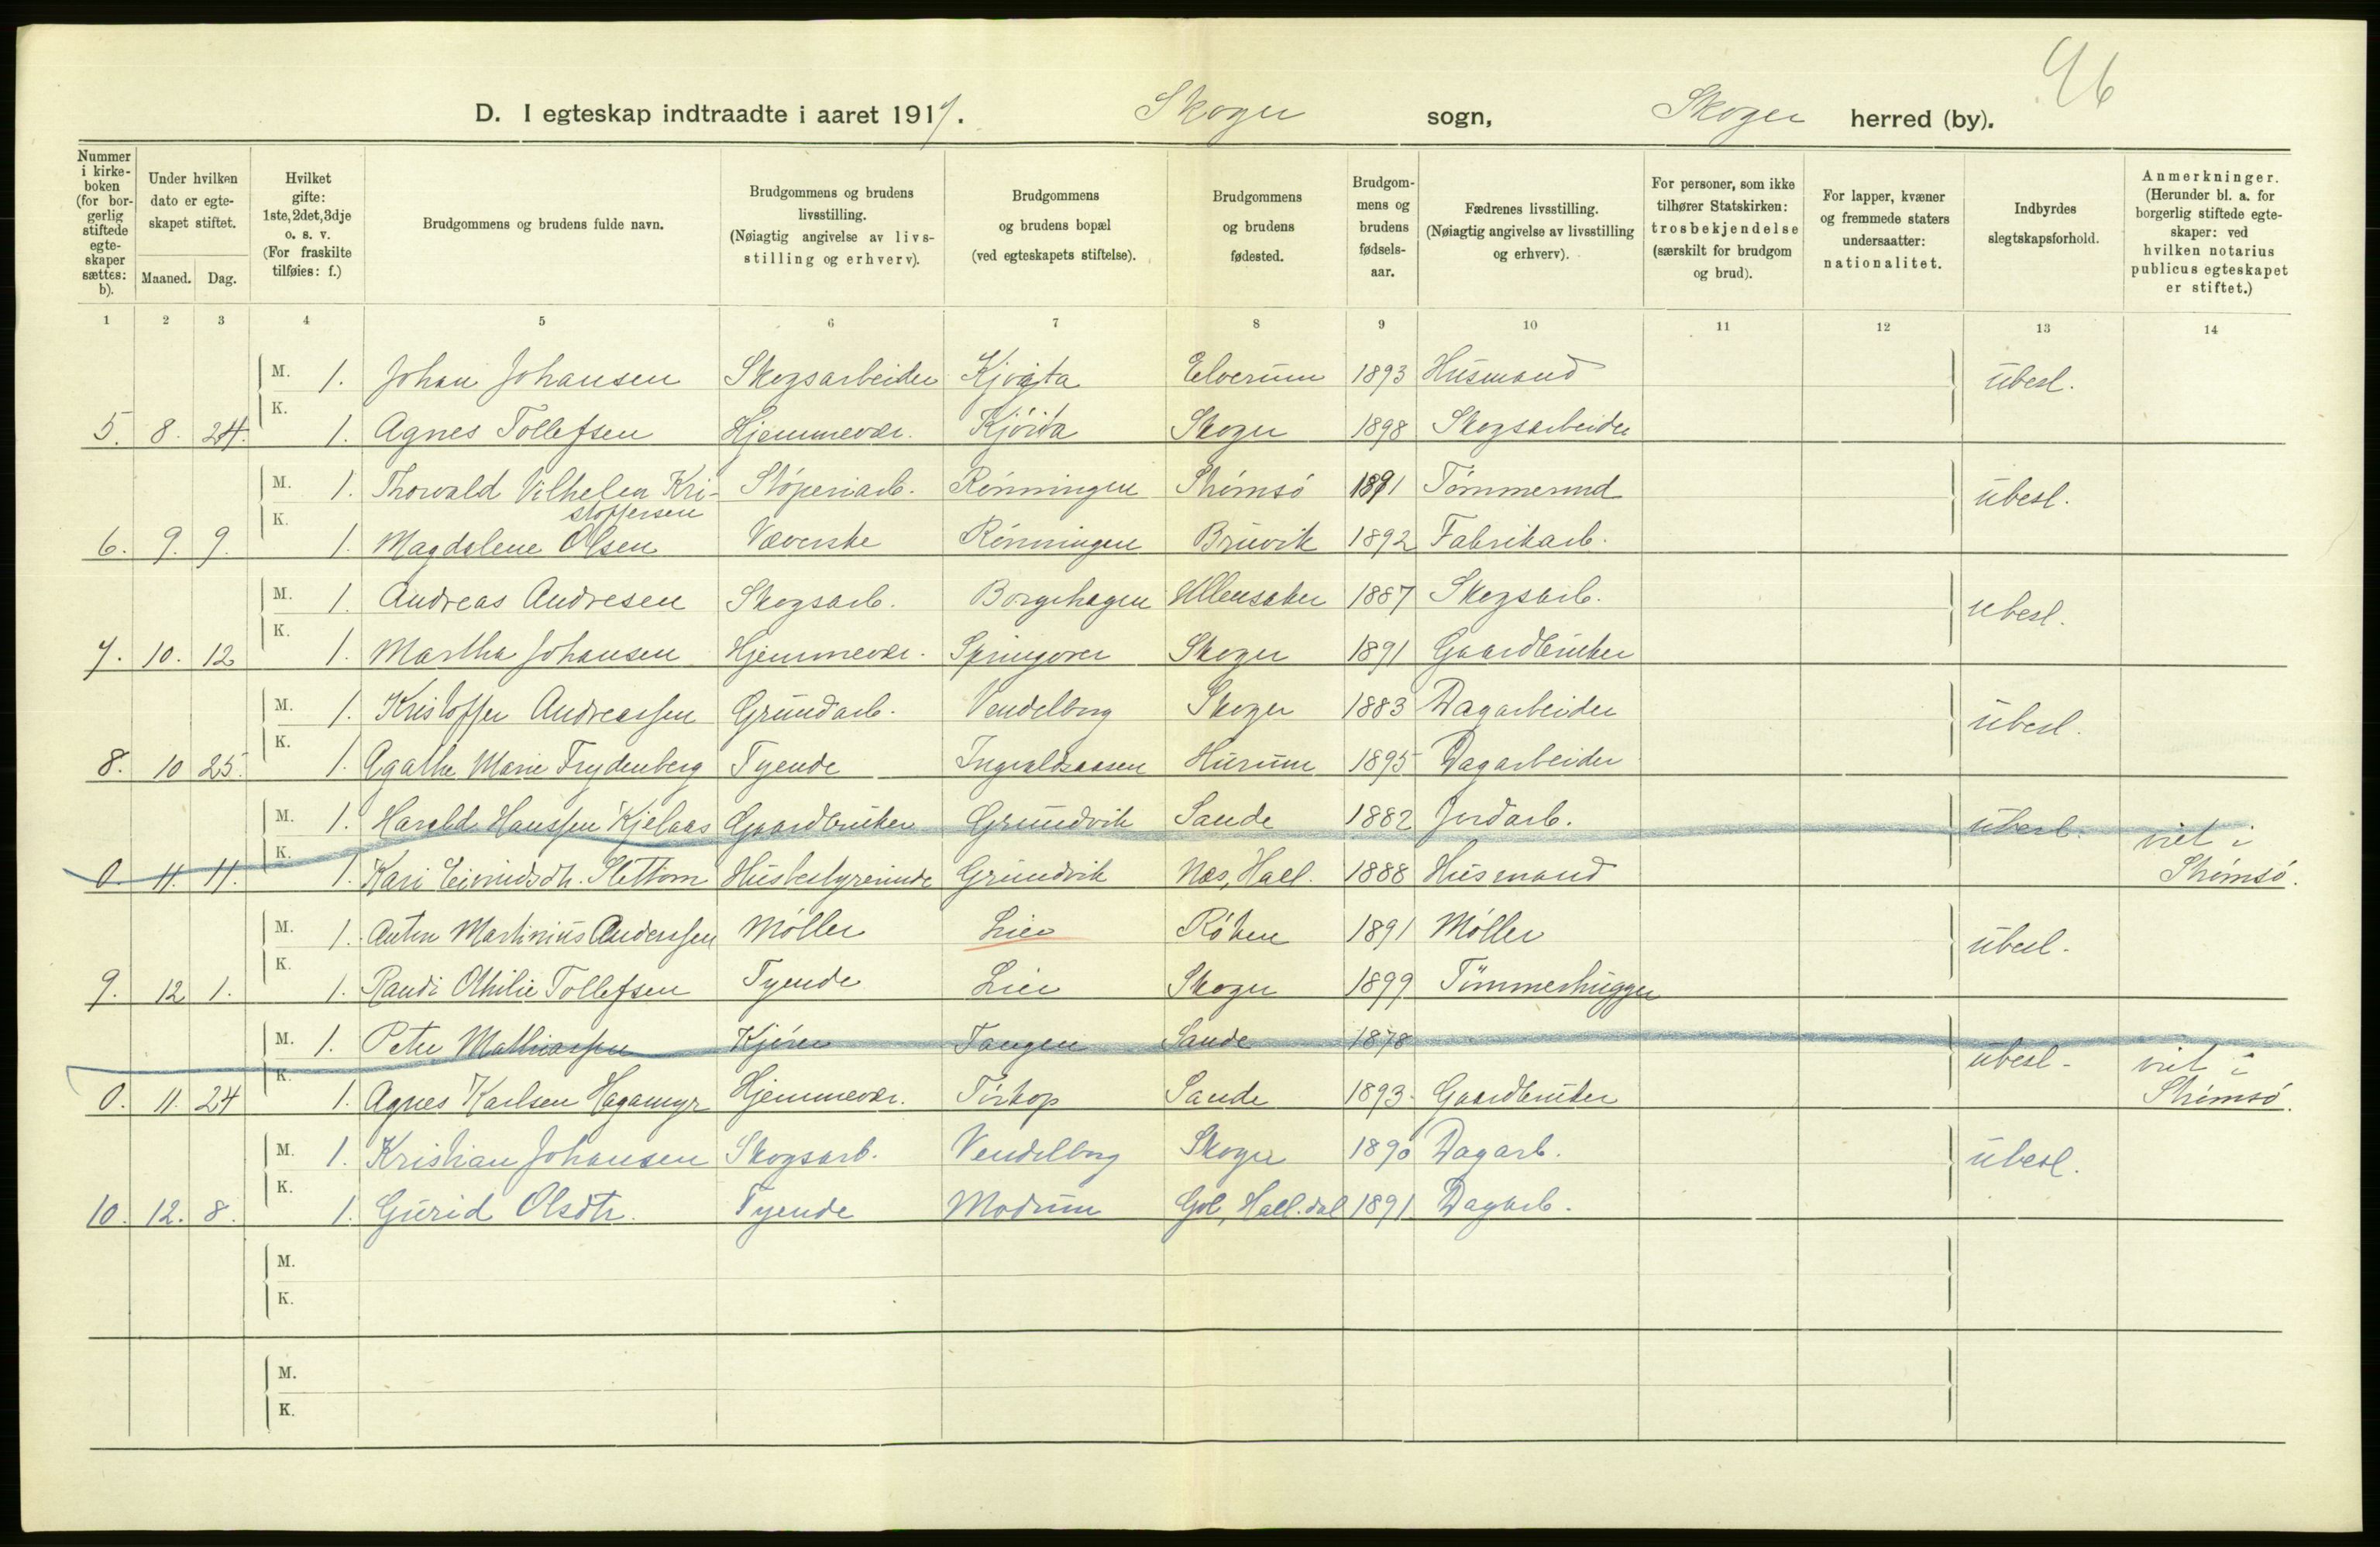 96
D. I egteskap indtraadte i aaret 1917. Skoger sogn, Skoger herred (by).
Nummer i kirke-boken (for bor-gerlig stiftede egte-skaper sættes: b).
Under hvilken dato er egte-skapet stiftet.
Maaned. Dag.
Hvilket gifte: 1ste, 2det, 3dje o. s. v. (For fraskilte tilføies: f.)
Brudgommens og brudens fulde navn.
Brudgommens og brudens livsstilling. (Nøiagtig angivelse av livs-stilling og erhverv).
Brudgommens og brudens bopæl (ved egteskapets stiftelse).
Brudgommens og brudens fødested.
Brudgom-mens og brudens fødsels-aar.
Fædrenes livsstilling. (Nøiagtig angivelse av livsstilling og erhverv).
For personer, som ikke tilhører Statskirken: trosbekjendelse (særskilt for brudgom og brud).
For lapper, kvæner og fremmede staters undersaatter: nationalitet.
Indbyrdes slegtskapsforhold.
Anmerkninger. (Herunder bl. a. for borgerlig stiftede egte-skaper: ved hvilken notarius publicus egteskapet er stiftet.)
1 2 3 4 5 6 7 8 9 10 11 12 13 14
M. 1. Johan Johansen Skogsarbeider Elverum 1893 Husmand ubesl.
K. 5. 8. 24. 1. Agnes Tollefsen Hjemmevær. Skoger 1898 Skogsarbeider
M. 1. Thorvald Vilhelm Kri- Støperiarb. Rønningen Strømsø 1891 Tømmermd ubesl.
stoffersen
K. 6. 9. 9. 1. Magdalene Olsen Væverske Rønningen Bruvik 1892 Fabrikarb.
M. 1. Andreas Andresen Skogsarb. Borgehagen Ullensaker 1887 Skogsarb. ubesl.
K. 7. 10. 12 1. Martha Johansen Hjemmevær. Skoger 1891 Gaardbruker
M. 1. Kristoffer Andreassen Grundarb. Vendelborg Skoger 1883 Dagarbeider ubesl.
K. 8. 10 25. 1. Agathe Marie Frydenberg Tyende Ingvaldsaasen Hurum 1895 Dagarbeider
M. 1. Harald Hanssen Kjelaas Gaardbruker Grundvik Sande 1882 Jordarb. ubesl. viet i
K. 0. 11. 11. 1. Kari Husbestyrerinde Grundvik Nes, Hall. 1888 Husmand Strømsø.
M. 1. Anton Martinius Anderssen Møller Lier Røken 1891 Møller ubesl.
K. 9. 12 1. 1. Randi Othilie Tollefsen Tyende Lier Skoger 1899 Tømmerhugger
M. 1. Peter Mathiassen Kjører Tangen Sande 1878 ubesl. viet i
K. 0. 11. 24 1. Agnes Karlsen Hagamyr Hjemmevær. Tørkop Sande 1893. Gaardbruker Strømsø.
M. 1. Kristian Johansen Skogsarb. Vendelborg Skoger 1890 Dagarb. ubesl.
K. 10. 12. 8. 1. Gurid Olsdtr. Tyende Modum Gol, Hall.dal 1891 Dagarb.
M.
K.
M.
K.